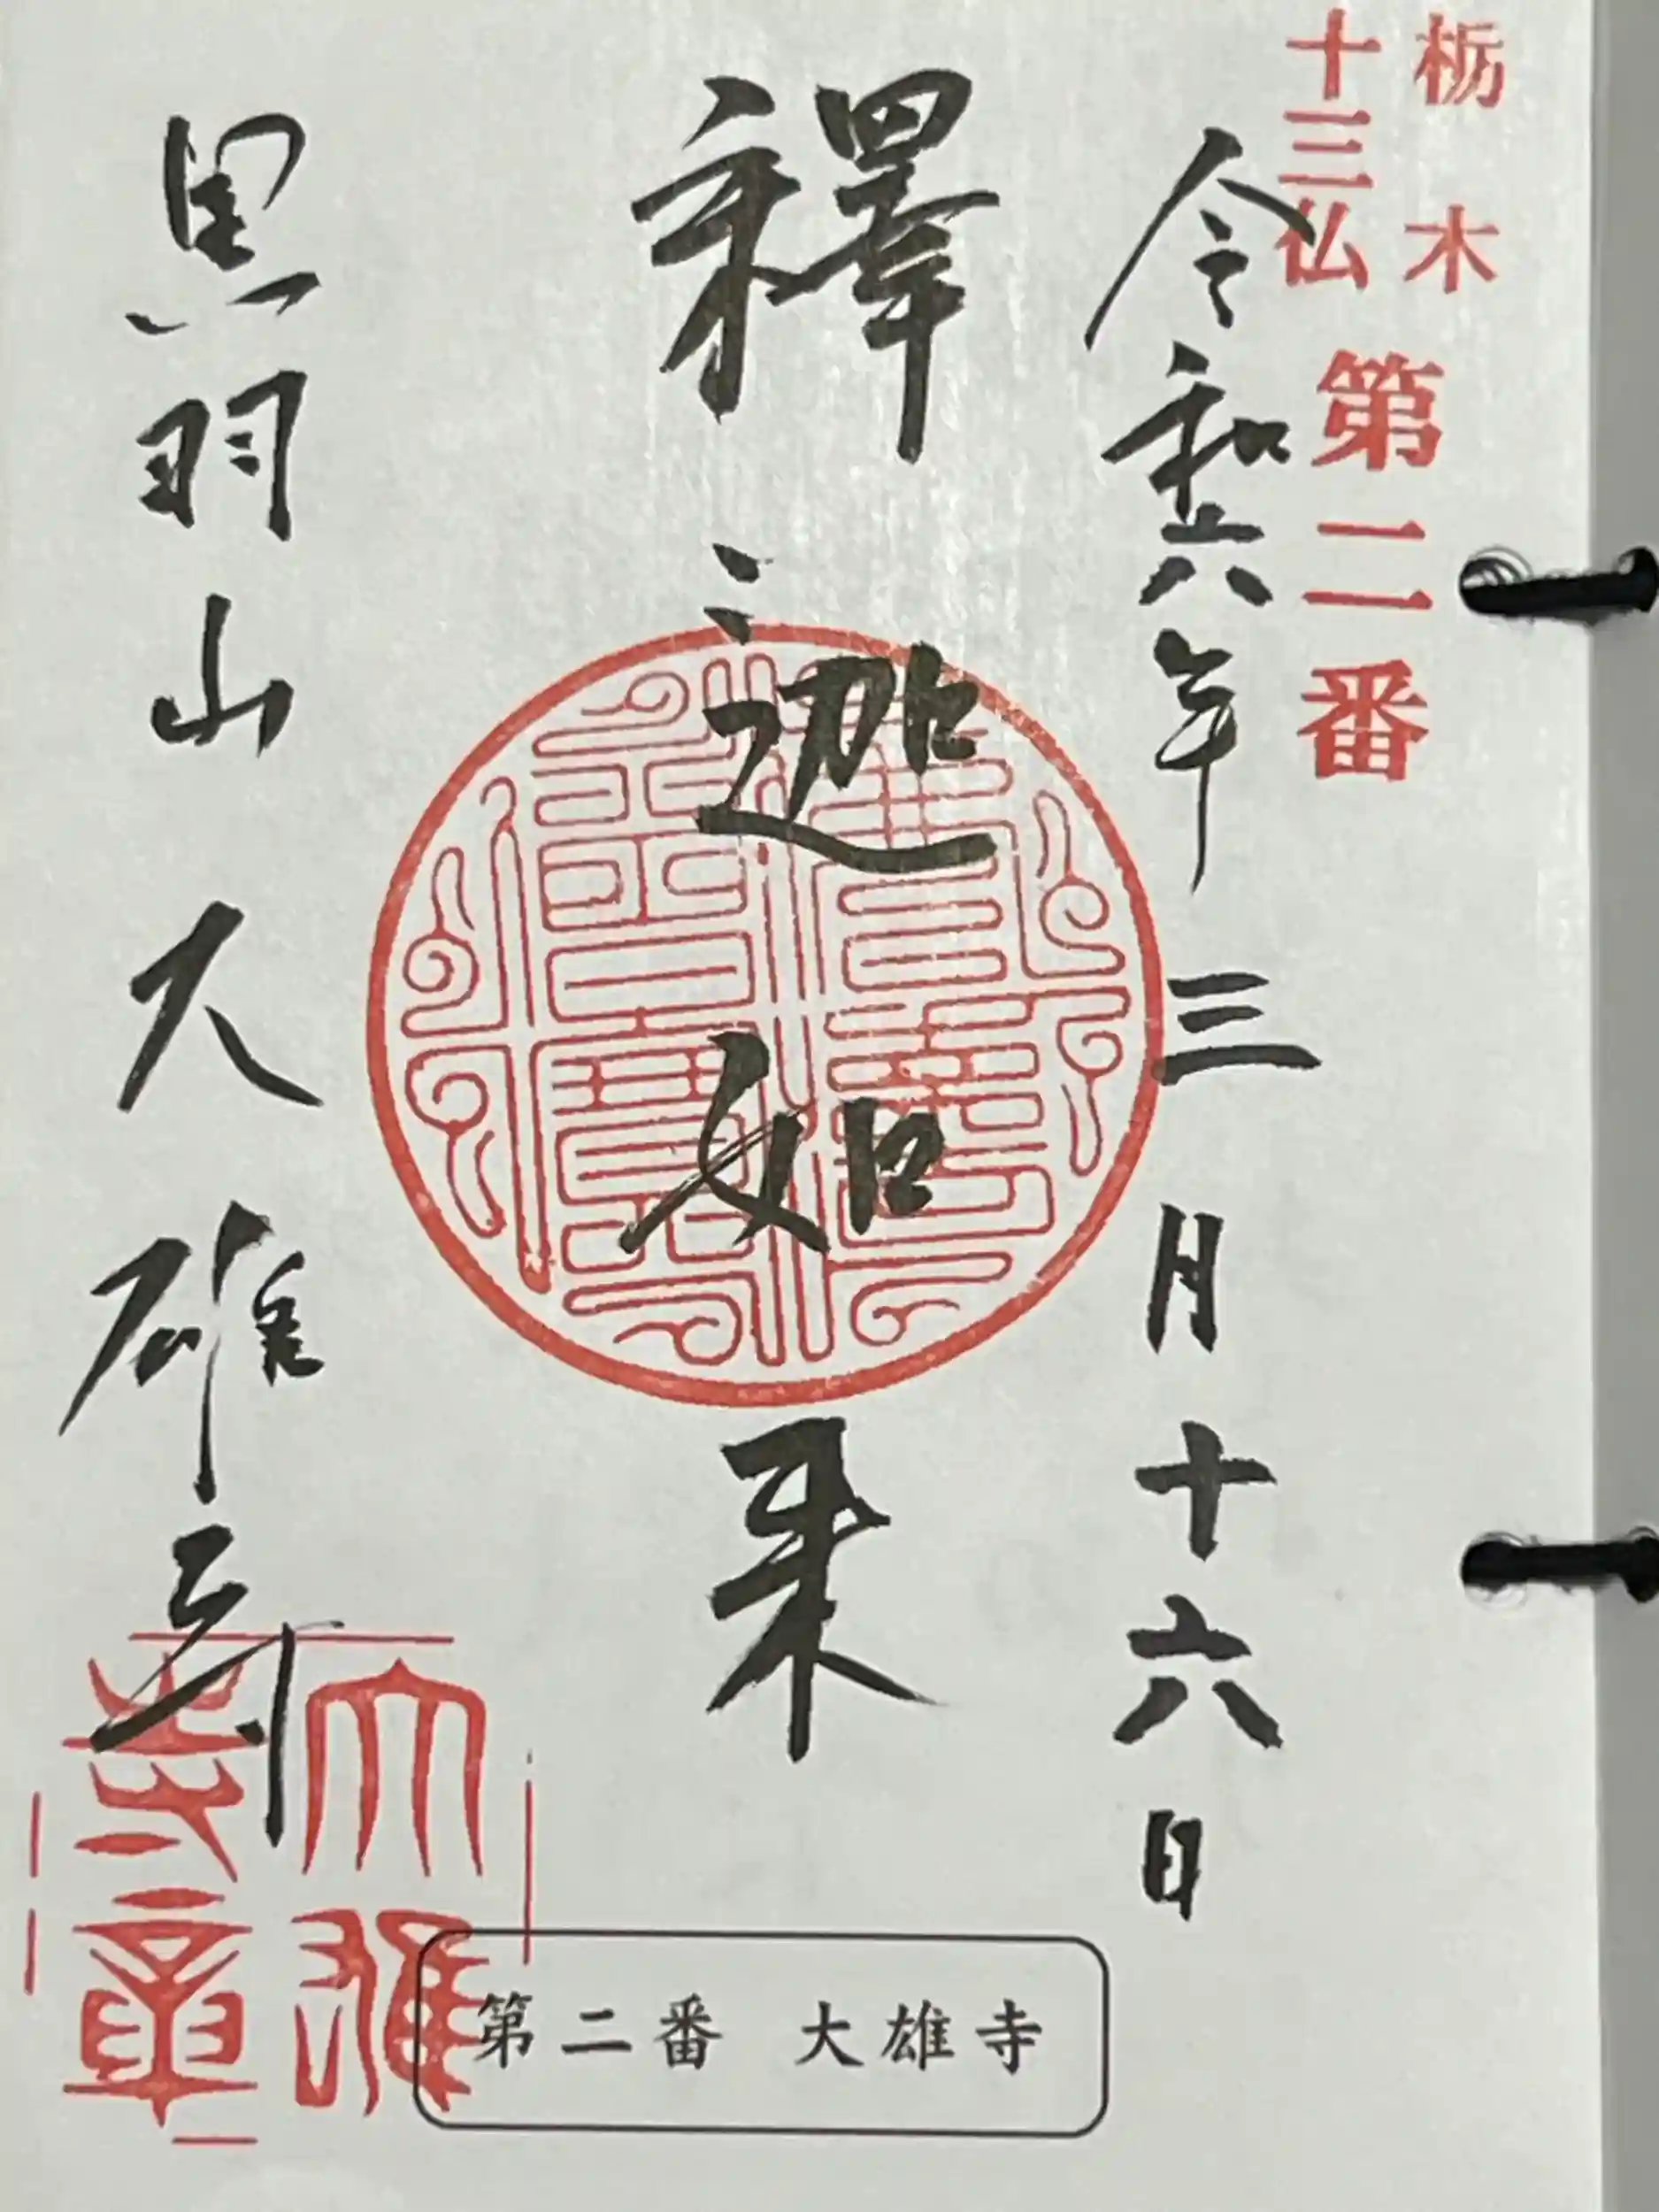 栃木
十三仏
第二番
令和六年三月十六日
釋迦如来
黒羽山大雄寺
大雄寺章
第二番 大雄寺